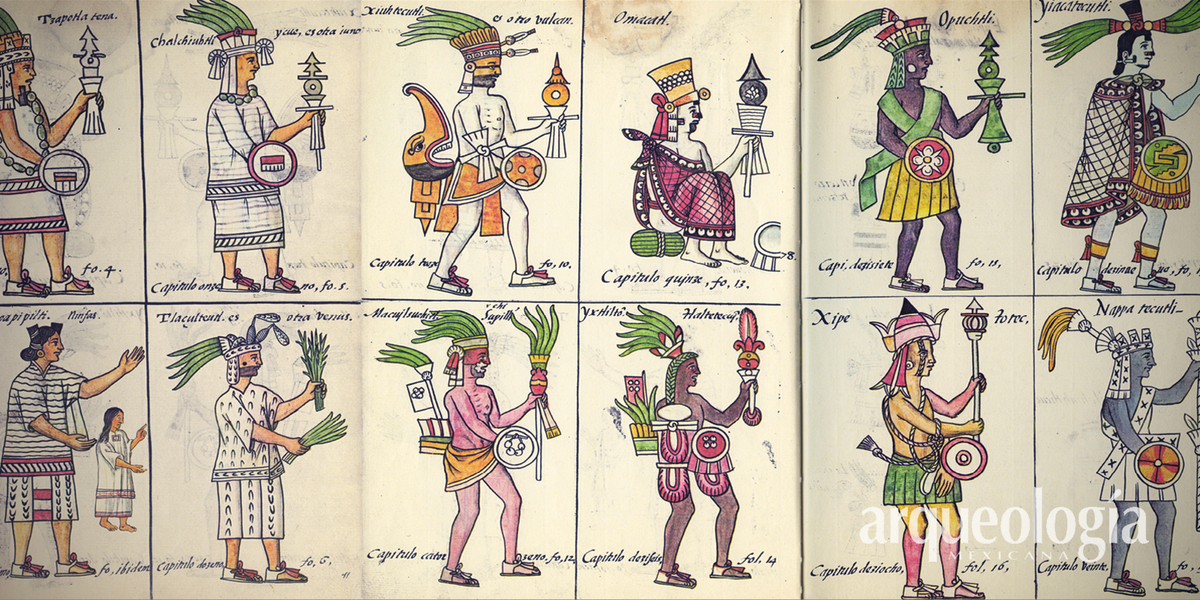 Tzapotla tena.
fo. 4.
Chalchiuhtli ycue, es otra iuno
Capitulo onze no, fo. 5.
Xiuhtecutli. es otro vulcan.
Capitulo treze fo, 10.
Omacatl.
Capitulo quinze, fo, 13.
Opuchtli.
Capi, desisiete fo, 15,
Yiacatecutli.
Capitulo
oapipilti. Ninfas.
fo, ibidem
Tlaçulteutl. es otra venus.
Capitulo doseno. fo, 6,
Macuilxuchitl
Capitulo cator zeno, fo, 12,
Yxtlilto.
Capitulo fol. 14
Xipe totec,
Capitulo desiocho, fol, 16,
Nappa tecutli
Capitulo Veinte,
arqueología
MEXICANA